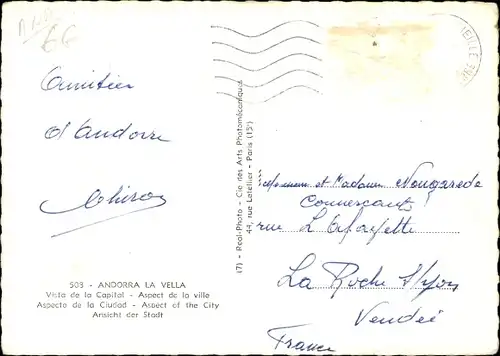 66
Amitiés
d'Andorre
503 - ANDORRA LA VELLA
Vista de la Capital - Aspect de la ville
Aspecto de la Ciudad - Aspect of the City
Ansicht der Stadt
(7) - Real-Photo - Cie des Arts Photomécaniques
44, rue Letellier - Paris (15e)
Monsieur et Madame Nougarede
Commerçant
rue Lafayette
La Roche s/Yon
Vendée
France